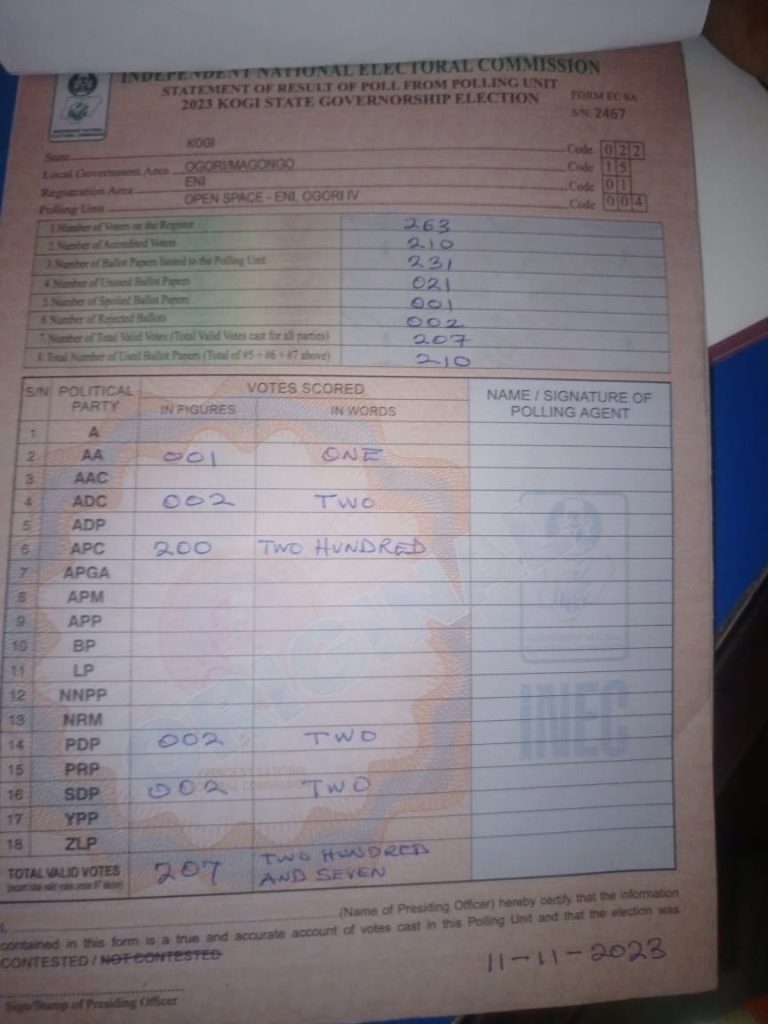 INDEPENDENT NATIONAL ELECTORAL COMMISSION
STATEMENT OF RESULT OF POLL FROM POLLING UNIT
2023 KOGI STATE GOVERNORSHIP ELECTION
FORM EC 8A
S/N: 2467
State KOGI Code 022
Local Government Area OGORI/MAGONGO Code 15
Registration Area ENI Code 01
Polling Unit OPEN SPACE - ENI, OGORI IV Code 004
1.Number of Voters on the Register 263
2.Number of Accredited Voters 210
3.Number of Ballot Papers Issued to the Polling Unit 231
4.Number of Unused Ballot Papers 021
5.Number of Spoiled Ballot Papers 001
6.Number of Rejected Ballots 002
7.Number of Total Valid Votes (Total Valid Votes cast for all parties) 207
8.Total Number of Used Ballot Papers (Total of #5 + #6 + #7 above) 210
S/N POLITICAL PARTY VOTES SCORED NAME / SIGNATURE OF POLLING AGENT
IN FIGURES IN WORDS
1 A
2 AA 001 ONE
3 AAC
4 ADC 002 TWO
5 ADP
6 APC 200 TWO HUNDRED
7 APGA
8 APM
9 APP
10 BP
11 LP
12 NNPP
13 NRM
14 PDP 002 TWO
15 PRP
16 SDP 002 TWO
17 YPP
18 ZLP
TOTAL VALID VOTES 207 TWO HUNDRED AND SEVEN
ORIGINAL
INEC
I, (Name of Presiding Officer) hereby certify that the information
contained in this form is a true and accurate account of votes cast in this Polling Unit and that the election was
CONTESTED / NOT CONTESTED
11-11-2023
Sign/Stamp of Presiding Officer